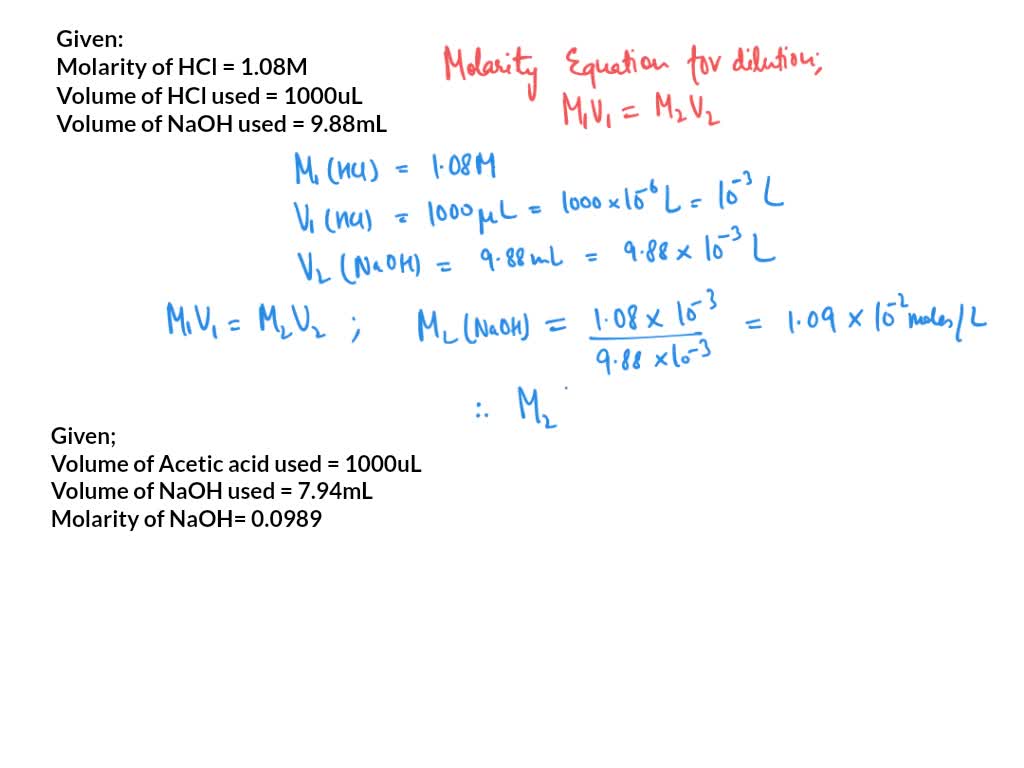 Given:
Molarity of HCl = 1.08M
Volume of HCl used = 1000uL
Volume of NaOH used = 9.88mL
Molarity Equation for dilution;
M₁V₁ = M₂V₂
M₁ (HCl) = 1.08M
V₁ (HCl) = 1000 μL = 1000 × 10⁻⁶ L = 10⁻³ L
V₂ (NaOH) = 9.88 mL = 9.88 × 10⁻³ L
M₁V₁ = M₂V₂ ; M₂ (NaOH) = 1.08 × 10⁻³ / 9.88 × 10⁻³ = 1.09 × 10⁻² moles/L
∴ M₂
Given;
Volume of Acetic acid used = 1000uL
Volume of NaOH used = 7.94mL
Molarity of NaOH= 0.0989